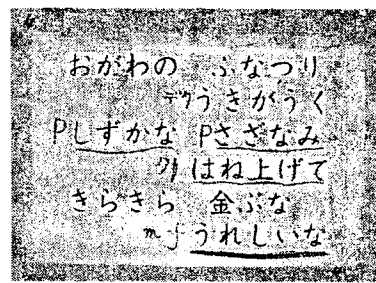 おがわの ふなつり
うきがうく
Pしずかな Pさざなみ
はね上げて
きらきら 金ぶな
mf うれしいな